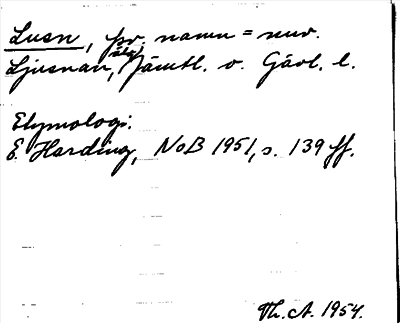 Lusn, fsv. namn = nuv.
Ljusnan, älv, Jämtl. o. Gävl. l.
Etymologi.
E. Harding, NoB 1951, s. 139 ff.
Th. A. 1954.